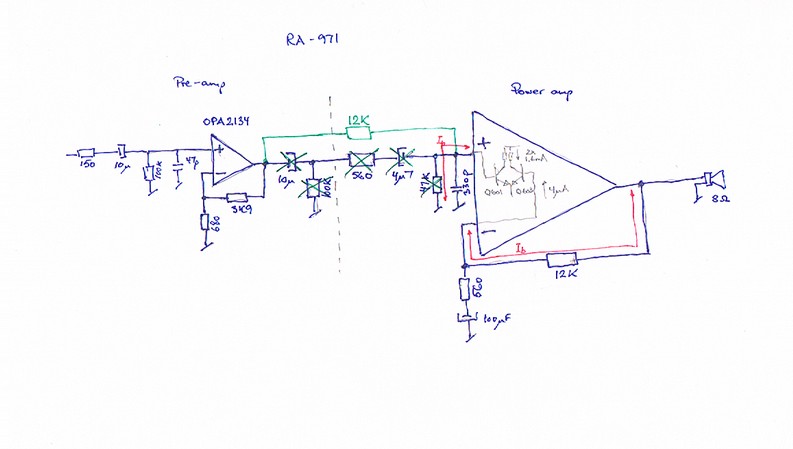 RA-971
Pre-amp
Power amp
OPA2134
12K
150
10µ
100K
47p
+
-
3K9
680
10µ
100K
560
4µ7
47K
330p
+
-
4µA
Ib
12K
560
100µF
8Ω